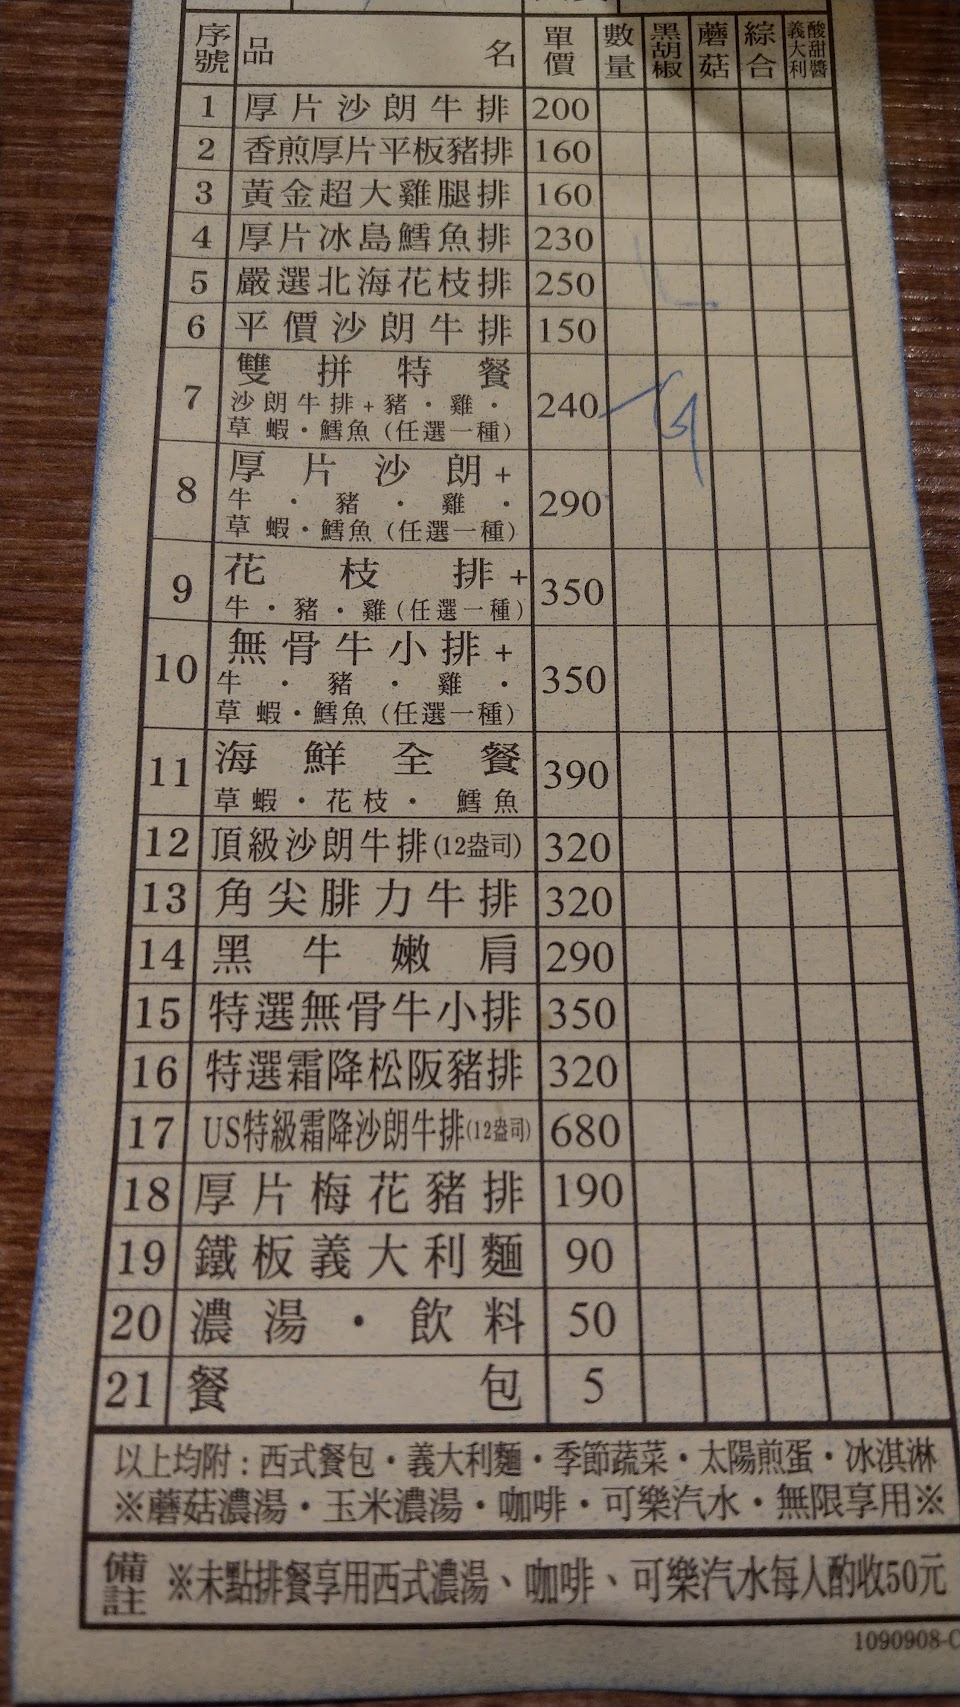 序號 品名 單價 數量 黑胡椒 蘑菇 綜合 義大利酸甜醬
1 厚片沙朗牛排 200
2 香煎厚片平板豬排 160
3 黃金超大雞腿排 160
4 厚片冰島鱈魚排 230
5 嚴選北海花枝排 250
6 平價沙朗牛排 150
7 雙拼特餐 240
沙朗牛排+豬・雞・
草蝦・鱈魚(任選一種)
8 厚片沙朗+ 290
牛・豬・雞・
草蝦・鱈魚(任選一種)
9 花枝排+ 350
牛・豬・雞(任選一種)
10 無骨牛小排+ 350
牛・豬・雞・
草蝦・鱈魚(任選一種)
11 海鮮全餐 390
草蝦・花枝・鱈魚
12 頂級沙朗牛排(12盎司) 320
13 角尖腓力牛排 320
14 黑牛嫩肩 290
15 特選無骨牛小排 350
16 特選霜降松阪豬排 320
17 US特級霜降沙朗牛排(12盎司) 680
18 厚片梅花豬排 190
19 鐵板義大利麵 90
20 濃湯・飲料 50
21 餐包 5
以上均附:西式餐包・義大利麵・季節蔬菜・太陽煎蛋・冰淇淋
※蘑菇濃湯・玉米濃湯・咖啡・可樂汽水・無限享用※
備註 ※未點排餐享用西式濃湯、咖啡、可樂汽水每人酌收50元
1090908-C